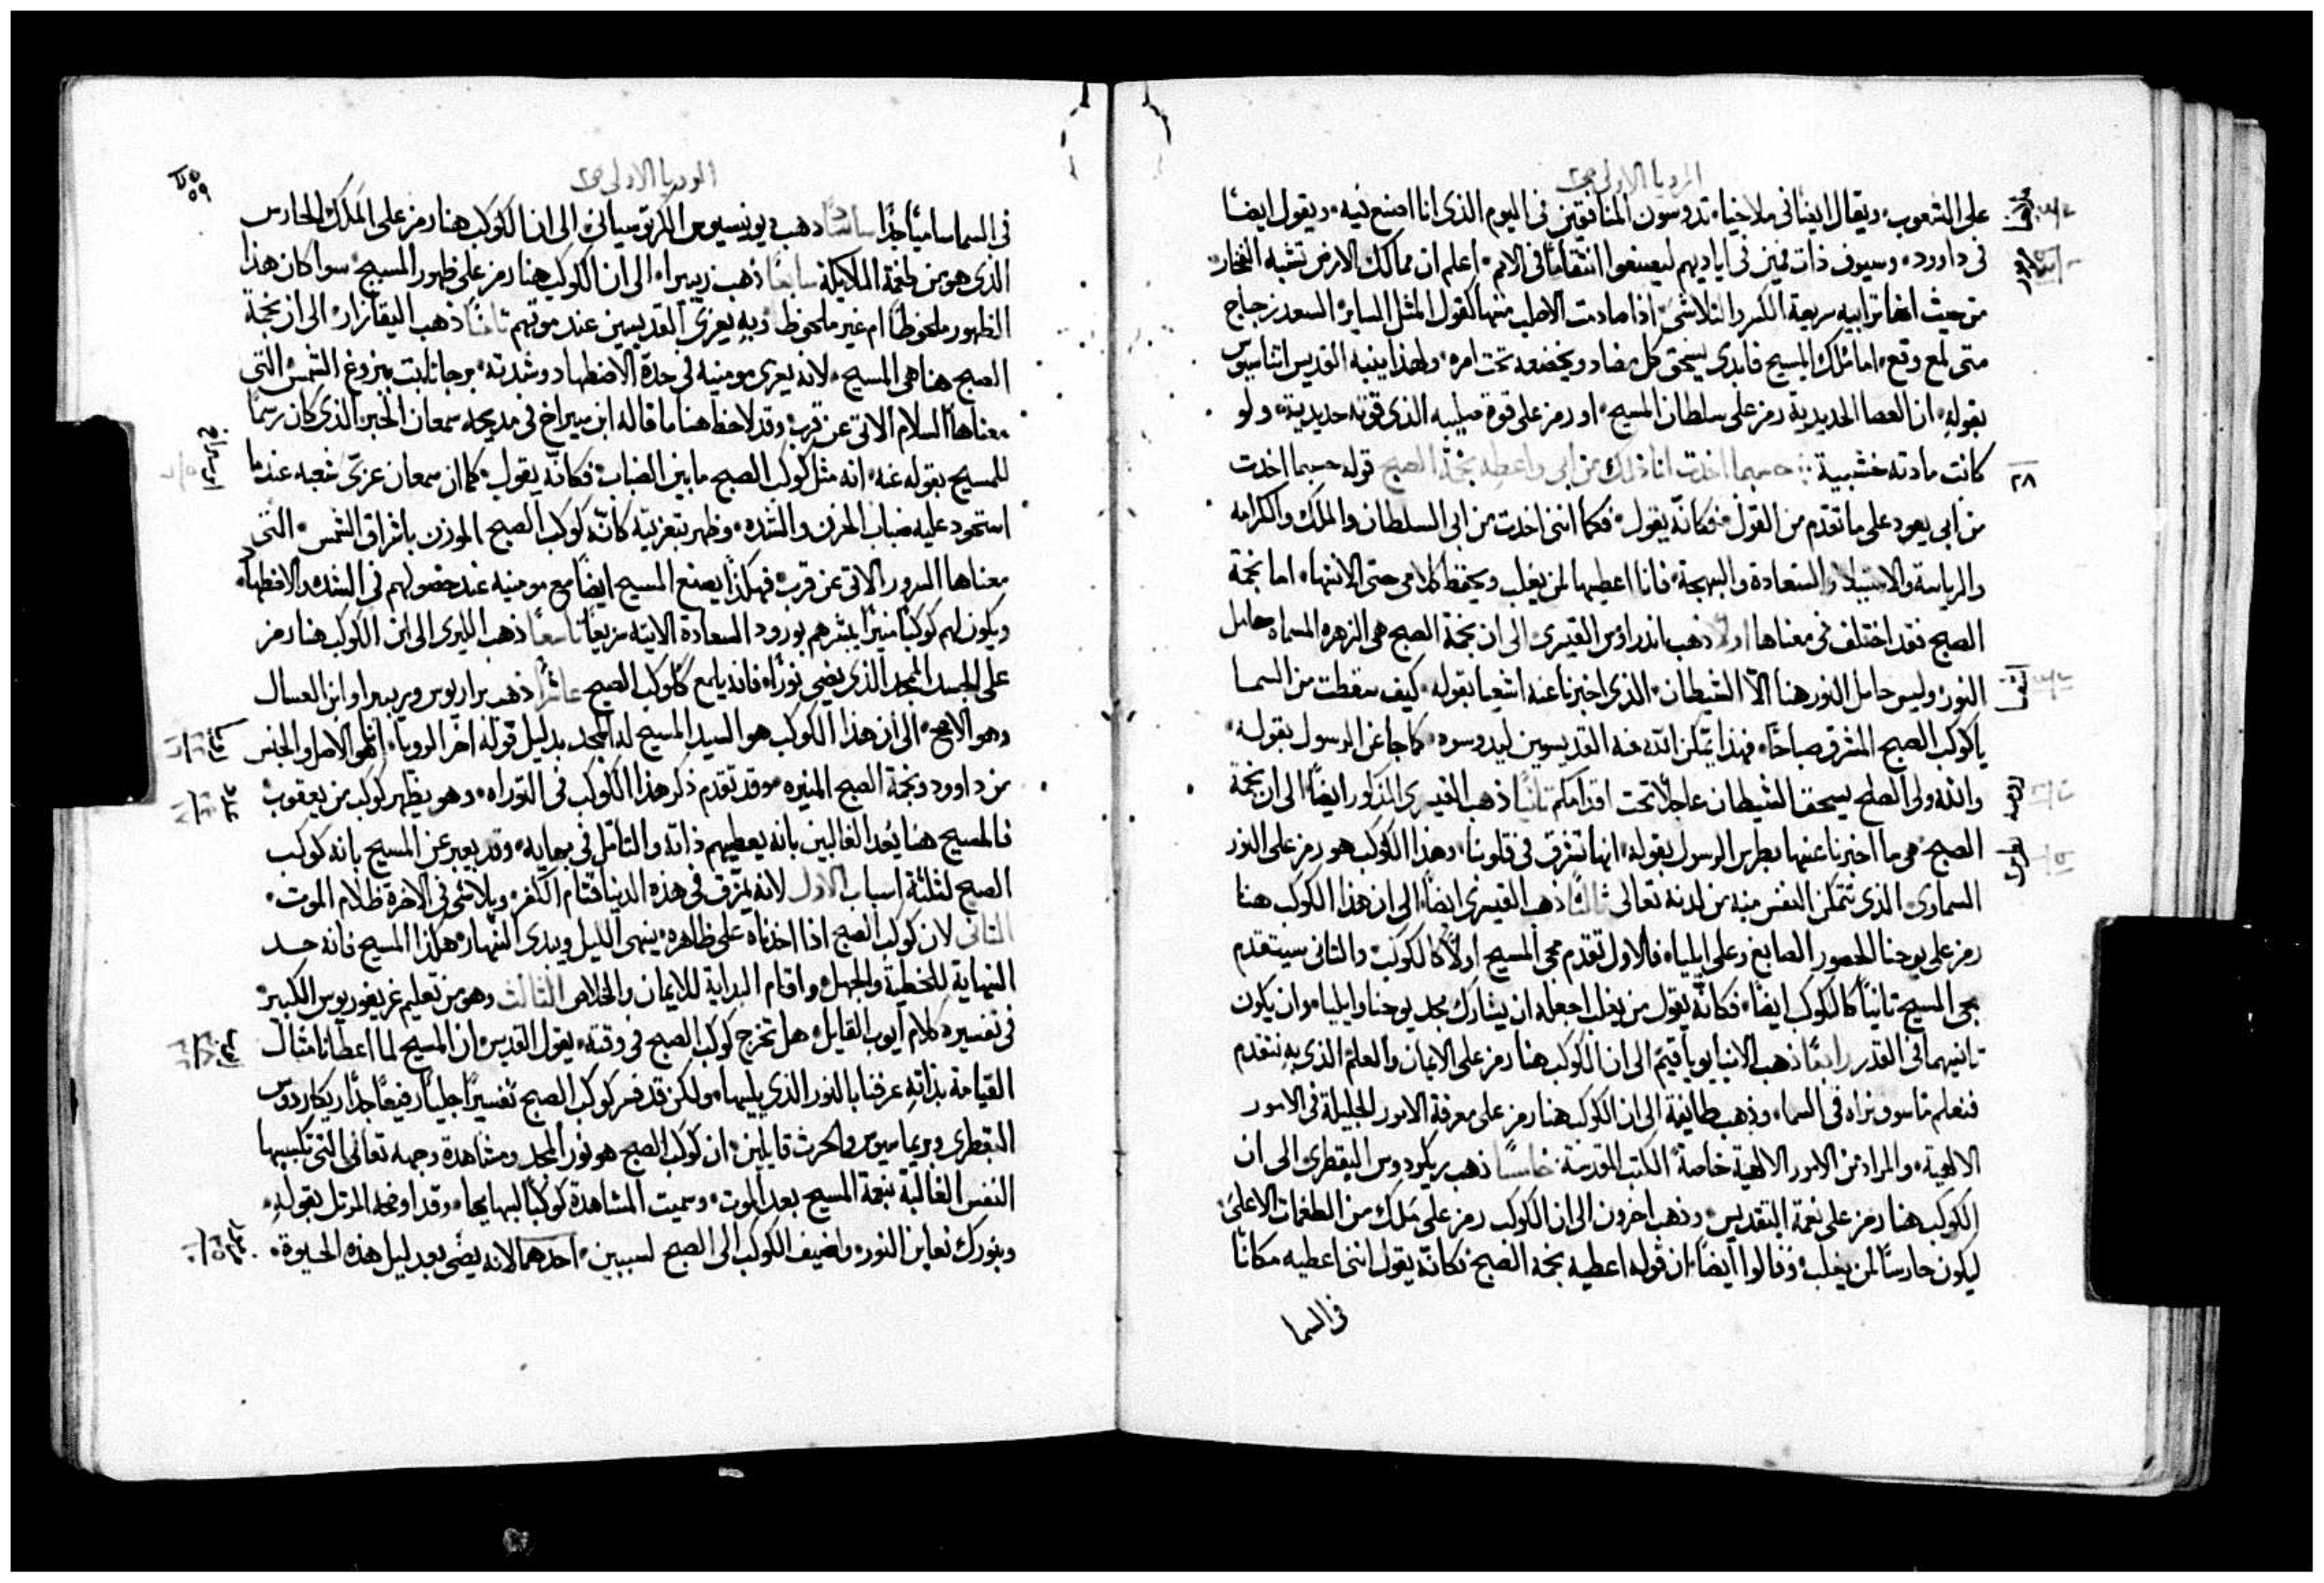 الرويا الاولى ص٢
على الشعوب ويقال ايضا فى ملاخيا تدوسون المنافقين فى اليوم الذى انا اصنع فيه ويقول ايضا
فى داوود وسيوف ذات فمين فى اياديهم ليصنعوا انتقاما فى الامم اعلم ان ممالك الارض تشبه الفخار
من حيث انها ترابيه سريعة الكسر والتلاشى اذا صادمت الاصلب منها كقول المثل الساير السعد زجاج
متى لمع وقع اما ملك المسيح فابدى يسحق كل مضاد ويخضعه تحت امره ولهذا ينبه القديس اتناسيوس
بقوله ان العصا الحديدية رمز على سلطان المسيح او رمز على قوة صليبه الذى قوته حديدية ولو
كانت مادته خشبية حسبما اخدت انا ذلك من ابى واعطيه نجمة الصبح قوله حسبما اخدت
٢٨
من ابى يعود على ما تقدم من القول فكانه يقول فكما اننى اخدت من ابى السلطان والملك والكرامه
والرياسة والاستيلا والسعادة والبهجة فانا اعطيها لمن يغلب ويحفظ كلامى حتى الانتها اما نجمة
الصبح فقد اختلف فى معناها اولا ذهب اندراوس القيسرى الى ان نجمة الصبح هى الزهره المسماه حامل
النور وليس حامل النور هنا الا الشيطان الذى اخبرنا عنه اشعيا بقوله كيف سقطت من السما
ياكوكب الصبح المشرق صباحا فهذا يمكن الله منه القديسين ليدوسوه كما جا عن الرسول بقوله
والله ولى الصلح يسحق الشيطان عاجلا تحت اقدامكم ثانيا ذهب القيسرى المذكور ايضا الى ان نجمة
الصبح هى ما اخبرنا عنها بطرس الرسول بقوله انها تشرق فى قلوبنا وهذا الكوكب هو رمز على النور
السماوى الذى تتمكن النفس منه من لدنه تعالى ثالثا ذهب القيسرى ايضا الى ان هذا الكوكب هنا
رمز على يوحنا الحصور الصابغ وعلى ايليا فالاول تقدم مجى المسيح اولا كالكوكب والثانى سيتقدم
مجى المسيح ثانيا كالكوكب ايضا فكانه يقول من يغلب اجعله ان يشارك مجد يوحنا وايليا وان يكون
ثانيهما فى القدر رابعا ذهب الانبا يوياقيم الى ان الكوكب هنا رمز على الايمان والعلم الذى به نتقدم
فنعلم ما سوف نراه فى السما وذهب طايفة الى ان الكوكب هنا رمز على معرفة الامور الجليلة فى الامور
الالهية والمراد من الامور الالهية خاصة الكتب المقدسة خامسا ذهب ريكردوس البقطرى الى ان
الكوكب هنا رمز على نعمة التقديس وذهب اخرون الى ان الكوكب رمز على ملك من الطغمات الاعلى
ليكون حارسا لمن يغلب وقالوا ايضا ان قوله اعطيه نجمة الصبح فكانه يقول اننى اعطيه مكانا
فى السما
الرويا الاولى ص٢
٥٩
فى السما ساميا جدا سادسا ذهب ديونيسيوس الكرتوسيانى الى ان الكوكب هنا رمز على الملك الحارس
الذى هو من طغمة الملايكة سابعا ذهب ريبيرا الى ان الكوكب هنا رمز على ظهور المسيح سوا كان هذا
الظهور ملحوظا ام غير ملحوظ وبه يعزى القديسين عند موتهم ثامنا ذهب اليقازار الى ان نجمة
الصبح هنا هى المسيح لانه يعزى مومنيه فى حدة الاضطهاد وشدته برجا ثابت ببزوغ الشمس التى
معناها السلام الاتى عن قرب وقد لاحظ هنا ما قاله ابن سيراخ فى مديحه سمعان الحبر الذى كان رسما
ابن سيراخ
للمسيح بقوله عنه انه مثل كوكب الصبح ما بين الضباب فكانه يقول كما ان سمعان عزى شعبه عندما
استحود عليه ضباب الحزن والشده وظهر بتعزيته كانه كوكب الصبح الموذن باشراق الشمس التى
معناها السرور الاتى عن قرب فهكذا يصنع المسيح ايضا مع مومنيه عند حصولهم فى الشده والاضطهاد
ويكون لهم كوكبا منيرا يبشرهم بورود السعادة الاتيه سريعا تاسعا ذهب الليرى الى ان الكوكب هنا رمز
على الجسد الممجد الذى يضى نورا فانه يلمع ككوكب الصبح عاشرا ذهب براريوس وبريبيرا وابن العسال
وهو الاصح الى ان هذا الكوكب هو السيد المسيح له المجد بدليل قوله اخر الرويا انا هو الاصل والجنس
من داوود ونجمة الصبح المنيره وقد تقدم ذكر هذا الكوكب فى التوراه وهو يظهر كوكب من يعقوب
فالمسيح هنا يعد الغالبين بانه يعطيهم ذاته والتامل فى بهايه وقد يعبر عن المسيح بانه كوكب
الصبح لثلثة اسباب الاول لانه يمزق فى هذه الدنيا قتام الكفر ويلاشى فى الاخرة ظلام الموت
الثانى لان كوكب الصبح اذا اخدناه على ظاهره ينهى الليل ويبدى النهار هكذا المسيح فانه حد
النهاية للخطية والجهل واقام البداية للايمان والخلاص الثالث وهو من تعليم غريغوريوس الكبير
فى تفسيره كلام ايوب القايل هل تخرج كوكب الصبح فى وقته يقول القديس ان المسيح لما اعطانا مثال
ايوب
القيامة بذاته عرفنا بالنور الذى يليها ولكن قد فسر كوكب الصبح تفسيرا جليا رفيعا جدا ريكاردوس
البقطرى وبريماسيوس والحرث قايلين ان كوكب الصبح هو نور المجد ومشاهدة وجهه تعالى التى تكتسبها
النفس الغالبة بنعمة المسيح بعد الموت وسميت المشاهدة كوكبا لبهايها وقد اوضحه المرتل بقوله
وبنورك نعاين النور واضيف الكوكب الى الصبح لسببين احدهما لانه يضى بعد ليل هذه الحيوة